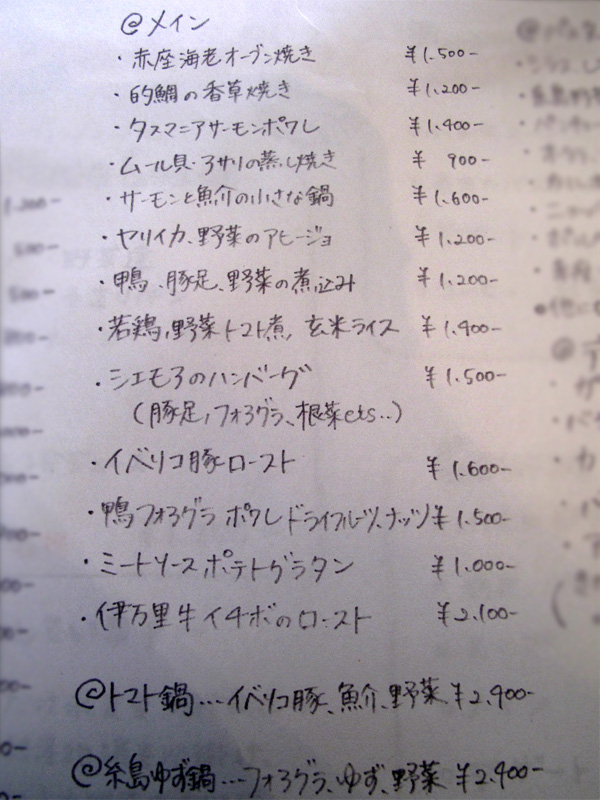 @メイン
・赤座海老オーブン焼き ¥1.500-
・的鯛の香草焼き ¥1.200-
・タスマニアサーモンポワレ ¥1.400-
・ムール貝・アサリの蒸し焼き ¥900-
・サーモンと魚介の小さな鍋 ¥1.600-
・ヤリイカ、野菜のアヒージョ ¥1.200-
・鴨、豚足、野菜の煮込み ¥1.200-
・若鶏、野菜トマト煮、玄米ライス ¥1.400-
・シエモアのハンバーグ ¥1.500-
(豚足、フォアグラ、根菜ets..)
・イベリコ豚ロースト ¥1.600-
・鴨フォアグラ ポワレドライフルーツ、ナッツ ¥1.500-
・ミートソースポテトグラタン ¥1.000-
・伊万里牛イチボのロースト ¥2.100-
@トマト鍋...イベリコ豚、魚介、野菜 ¥2.400-
@糸島ゆず鍋...フォアグラ、ゆず、野菜 ¥2.400-